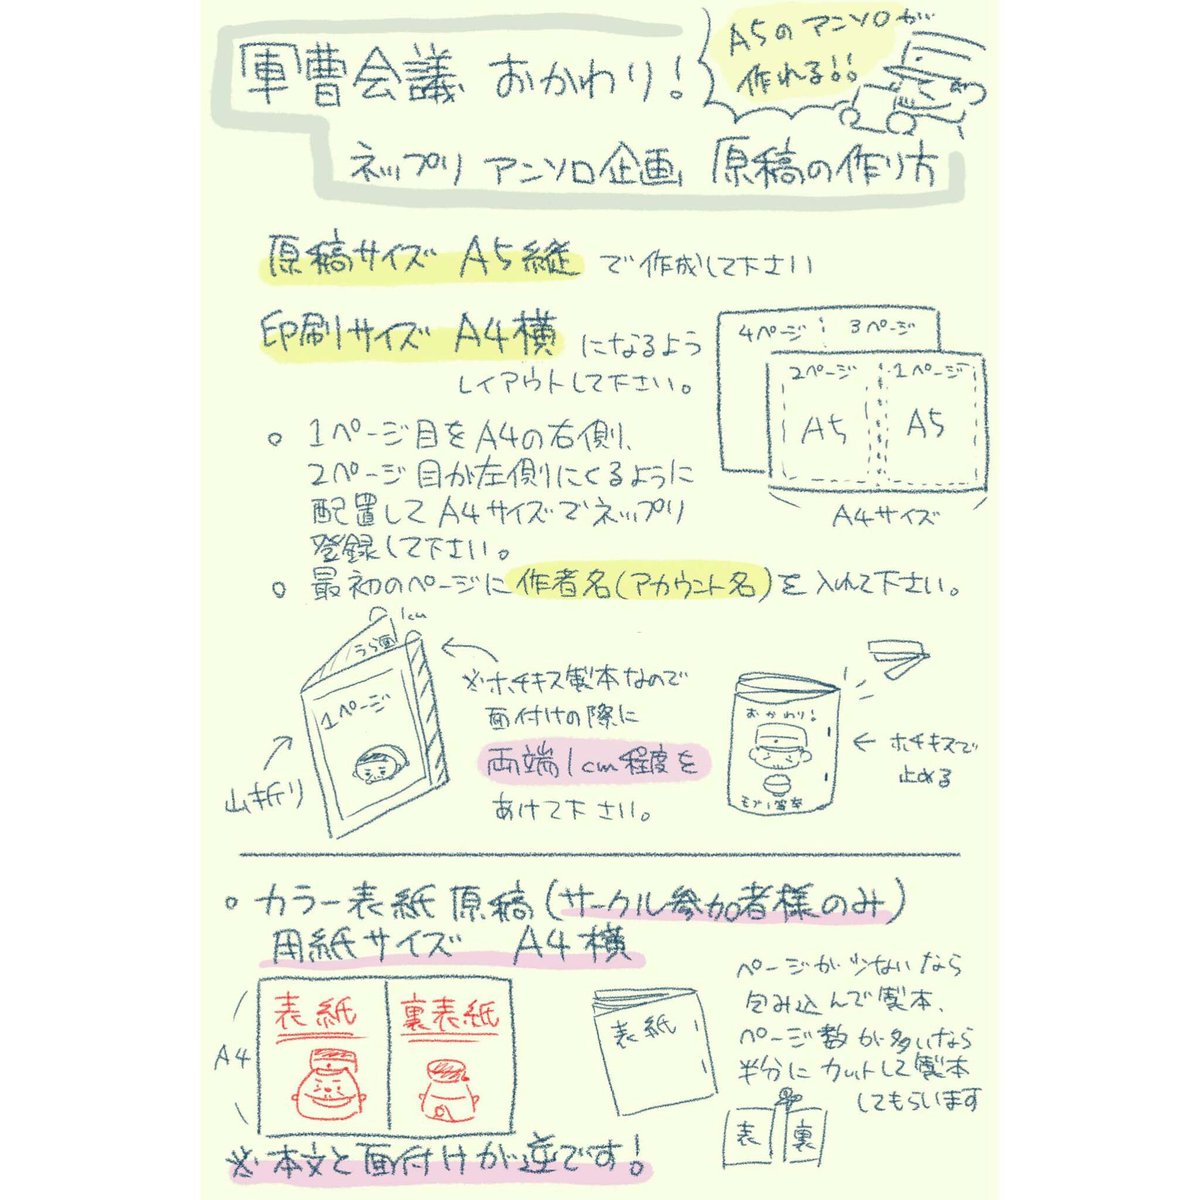 軍曹会議 おかわり!
A5のアンソロが
作れる!!
ネップリ アンソロ企画 原稿の作り方
原稿サイズ A5縦 で作成して下さい
印刷サイズ A4横 になるよう
レイアウトして下さい。
4ページ 3ページ
2ページ 1ページ
A5 A5
A4サイズ
○ 1ページ目をA4の右側、
2ページ目が左側にくるように
配置してA4サイズでネップリ
登録して下さい。
○ 最初のページに作者名(アカウント名)を入れて下さい。
1cm
うら面
1ページ
山折り
※ホチキス製本なので
面付けの際に
両端1cm程度を
あけて下さい。
おかわり!
← ホチキスで
止める
○ カラー表紙原稿(サークル参加者様のみ)
用紙サイズ A4横
A4
表紙 裏表紙
表紙
ページが少ないなら
包み込んで製本、
ページ数が多いなら
半分にカットして製本
してもらいます
表 裏
※本文と面付けが逆です!